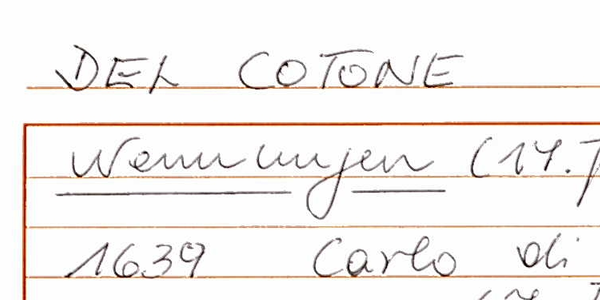 DEL COTONE
Nennungen (17.
1639 Carlo di